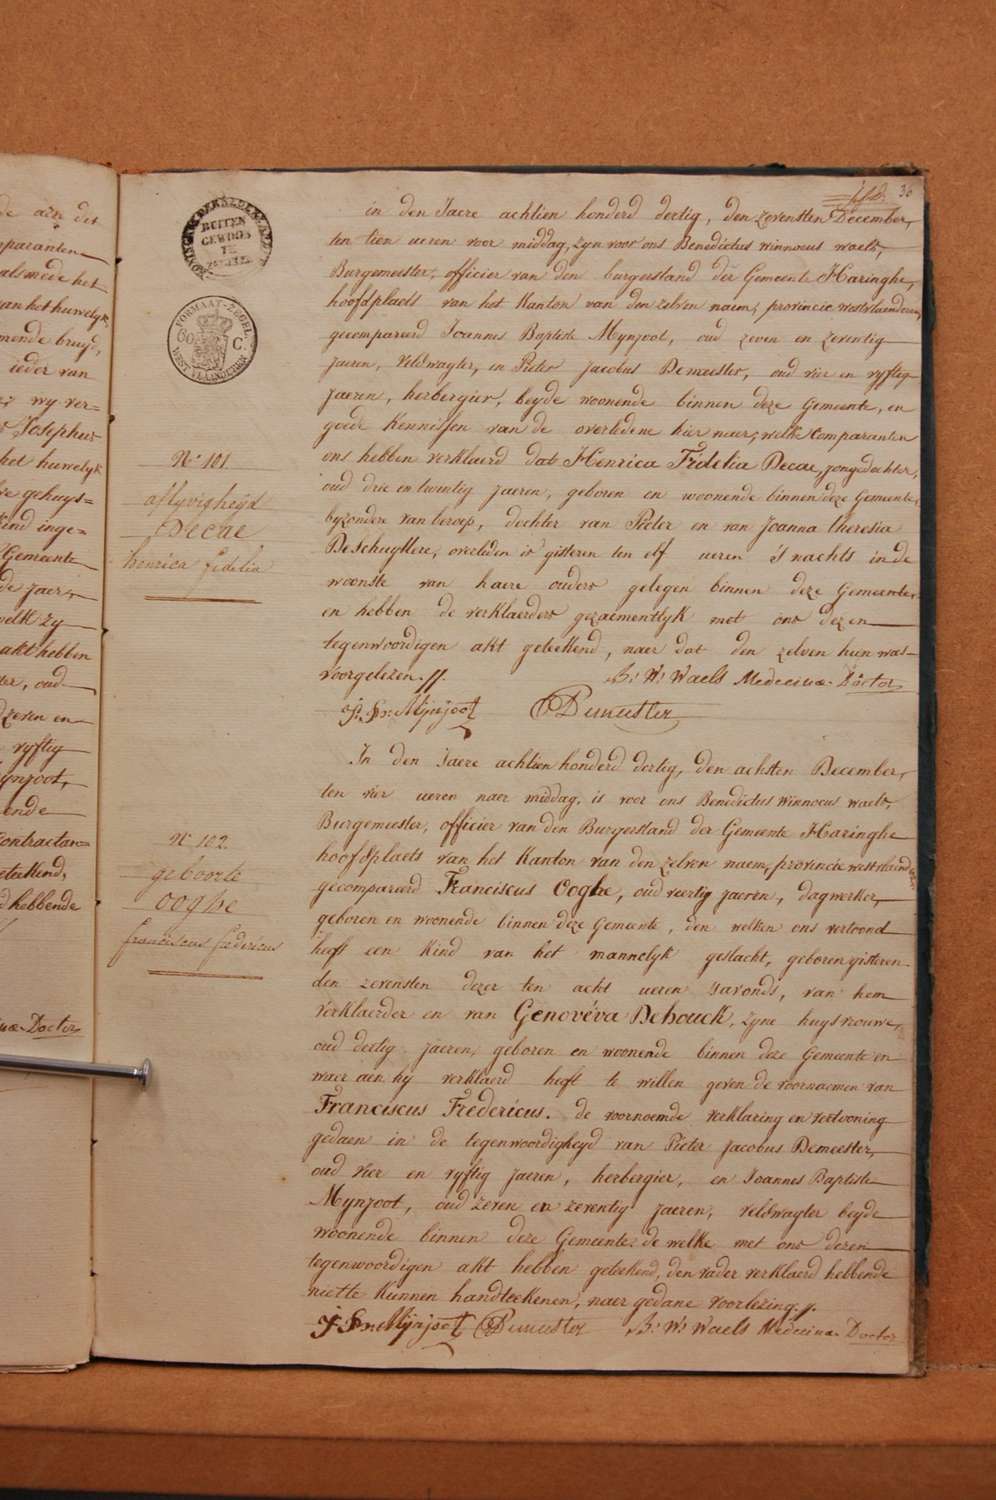 de aen dit
mparanten
alsmede het
van het huwelyk,
mende bruyd,
ieder van
wy ver=
Josephus
het huwelyk
gehuys=
kind inge=
Gemeente
de jaer,
welk zy
akt hebben
oud
zeven en
vyftig
Mynjoot,
ende
Contractan=
geteekend,
hebbende
Doctor
36
BUITEN
GEWOON
FORMAAT-ZEGEL
60 C.
WEST VLAANDEREN
in den Jaere achtien honderd dertig, den zevensten December,
ten tien ueren voor middag, zyn voor ons Benedictus winnocus waels,
Burgemeester, officier van den burgerstand der Gemeente Haringhe,
hoofdplaets van het Kanton van den zelven naem, provincie westvlaenderen,
gecompareerd Joannes Baptiste Mynjoot, oud zeven en zeventig
jaeren, veldwagter, en Pieter Jacobus Demeester, oud vier en vyftig
jaeren, herbergier, beyde woonende binnen deze Gemeente, en
goede Kennissen van de overledene hier naer, welke Comparanten
N.º 101
ons hebben verklaerd dat Henrica Fidelia Decae, jongedochter,
aflyvigheyd
oud drie en twintig jaeren, geboren en woonende binnen deze Gemeente,
Decae
byzondere van beroep, dochter van Pieter en van Joanna theresia
henrica fidelia
DeSchuyttere, overleden is gisteren ten elf ueren 's nachts in de
woonste van haere ouders gelegen binnen deze Gemeente,
en hebben de verklaerders gezaementlyk met ons dezen
tegenwoordigen akt geteekend, naer dat den zelven hun was
voorgelezen. //.
B: W: Waels Medecinæ Doctor
J. Bte Mijnjoot PDemeester
In den Jaere achtien honderd dertig, den achsten December,
ten vier ueren naer middag, is voor ons Benedictus winnocus waels,
Burgemeester, officier van den Burgerstand der Gemeente Haringhe
N.º 102
hoofdplaets van het Kanton van den zelven naem, provincie westvlaenderen
geboorte
gecompareerd Franciscus Ooghe, oud veertig jaeren, dagwerker,
ooghe
geboren en woonende binnen deze Gemeente, den welken ons vertoond
franciscus fredericus
heeft een Kind van het mannelyk geslacht, geboren gisteren
den zevensten dezer ten acht ueren s'avonds, van hem
verklaerder en van Genovéva Dehouck, zyne huysvrouwe,
oud dertig jaeren, geboren en woonende binnen deze Gemeente en
waer aen hy verklaerd heeft te willen geven de voornaemen van
Franciscus Fredericus. de voornoemde verklaring en vertooning
gedaen in de tegenwoordigheyd van Pieter Jacobus Demeester,
oud vier en vyftig jaeren, herbergier, en Joannes Baptiste
Mynjoot, oud zeven en zeventig jaeren, veldwagter beyde
woonende binnen deze Gemeente de welke met ons dezen
tegenwoordigen akt hebben geteekend, den vader verklaerd hebbende
niet te kunnen handteekenen, naer gedane voorlezing.//.
J. Bte Mijnjoot PDemeester B: W: Waels Medecinæ Doctor